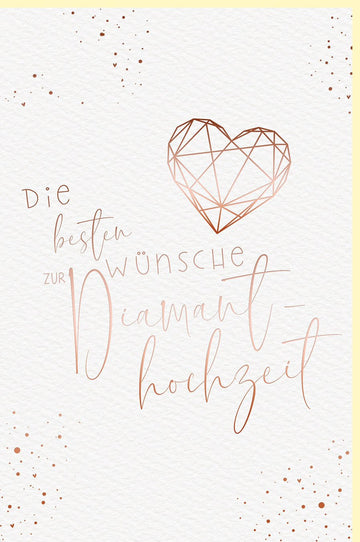 Die
besten
WÜNSCHE
ZUR Diamant-
hochzeit